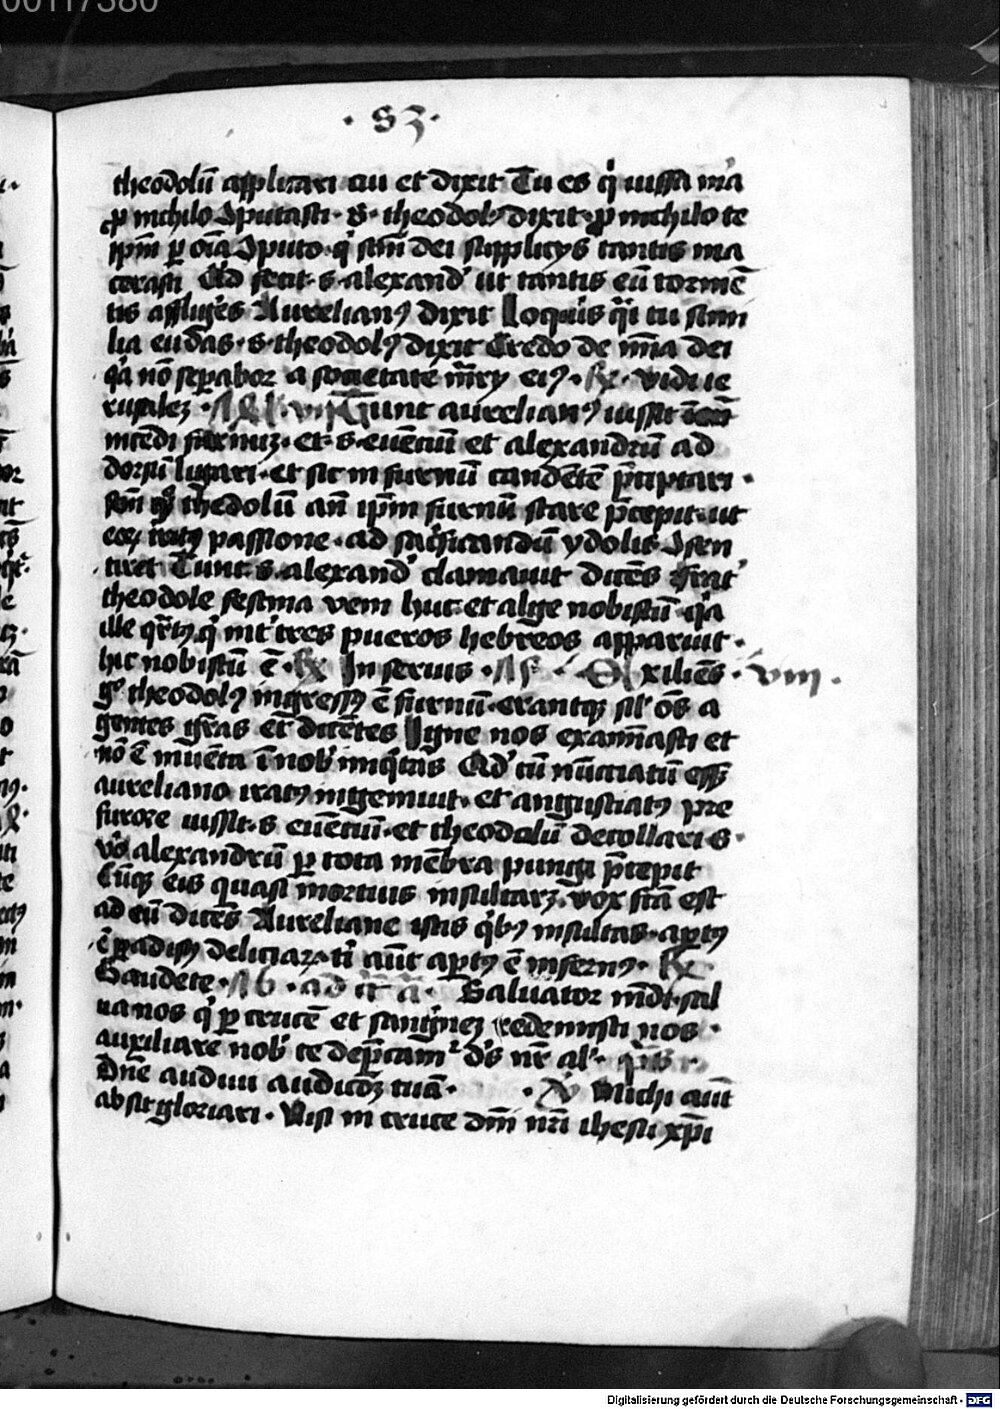 00117380
· 83 ·
theodolū applicari cui et dixit Tu es q̇ iussa m̄a
ꝓ nichilo Iputasti · S · theodolꝰ dixit · ꝓ nichilo te
ip̄m ꝑ oīa Iputo · q' sc̄m dei suppliciis tantis ma
cerasti Qd' fecit · s · alexand' ut tantis eū tormē
tis affliges Aurelianꝰ dixit Loqueris q̇i tu simi
lia eudas · s · theodolꝰ dixit Credo de mīa dei
q'a nō seꝑabor a societate m̄ry eiꝰ · Rx · vidi ie
rusalez · vii Tunc aurelianꝰ iussit
incēdi furnuz · et · s · euēciū et alexandrū ad
dorsū ligari · et sic in furnū candētē p̄cipitari ·
thedolū an̄ ip̄m furnū stare p̄cepit · ut
eoꝝ passione · ad sac'ficandū ydolis Isen
tiret Tunc · s · alexand' clamauit dicēs frat'
theodole festina veni huc · et alge nobiscū · q'a
ille q̄rtꝰ q' int' tres pueros hebreos apparuit ·
hic nobiscū ē · Rx In seruis · Exiliēs · viii ·
g° theodolꝰ ingressꝰ ē furnū · erantqꝫ sil' ōs a
gentes gr̄as et dicētes Igne nos examīasti et
nō ē inuēta ī nob' iniq'tas Qd' cū nūciatū essꝫ
aureliano iratꝰ ingemuit · et angustiatꝰ pre
furore iussit · s euēciū · et theodolū decollari · s ·
v° alexandrū ꝑ tota mēbra pungi p̄cepit
Cūqꝫ eis quasi mortuis insultarꝫ · vox fc̄a est
ad eū dicēs Aureliane istis q'bꝰ insultas · aꝑtꝰ
ē ꝑadisꝰ deliciaꝝ · ti' aūt aꝑtꝰ ē infernꝰ · Rx
Gaudete · Salvator mūdi · sal
ua nos q' ꝑ crucē et sanguinez redemisti nos ·
auxiliare nob' te dep̄camur d's nr̄ al' ·
Dn̄e audiui audicōz tuā · · V Michi aūt
absit gloriari · Nisi in cruce dn̄i nr̄i ihesu xp̄i
Digitalisierung gefördert durch die Deutsche Forschungsgemeinschaft - DFG